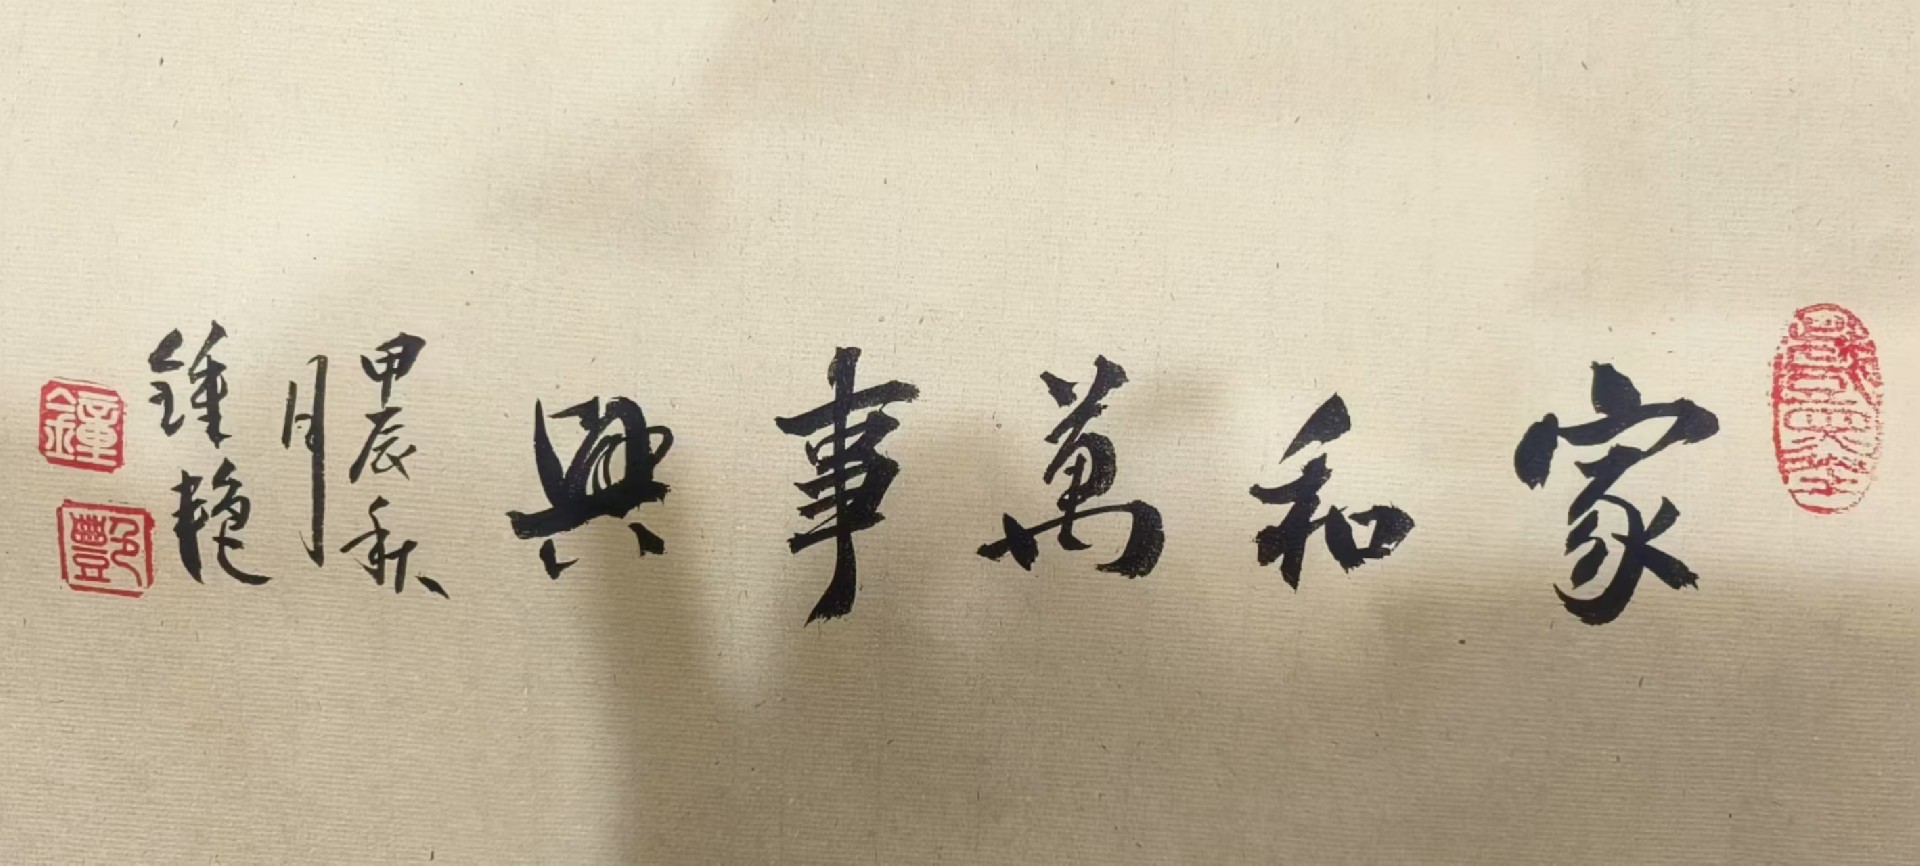 家和萬事興
甲辰秋
月
鍾艳
鐘
艷